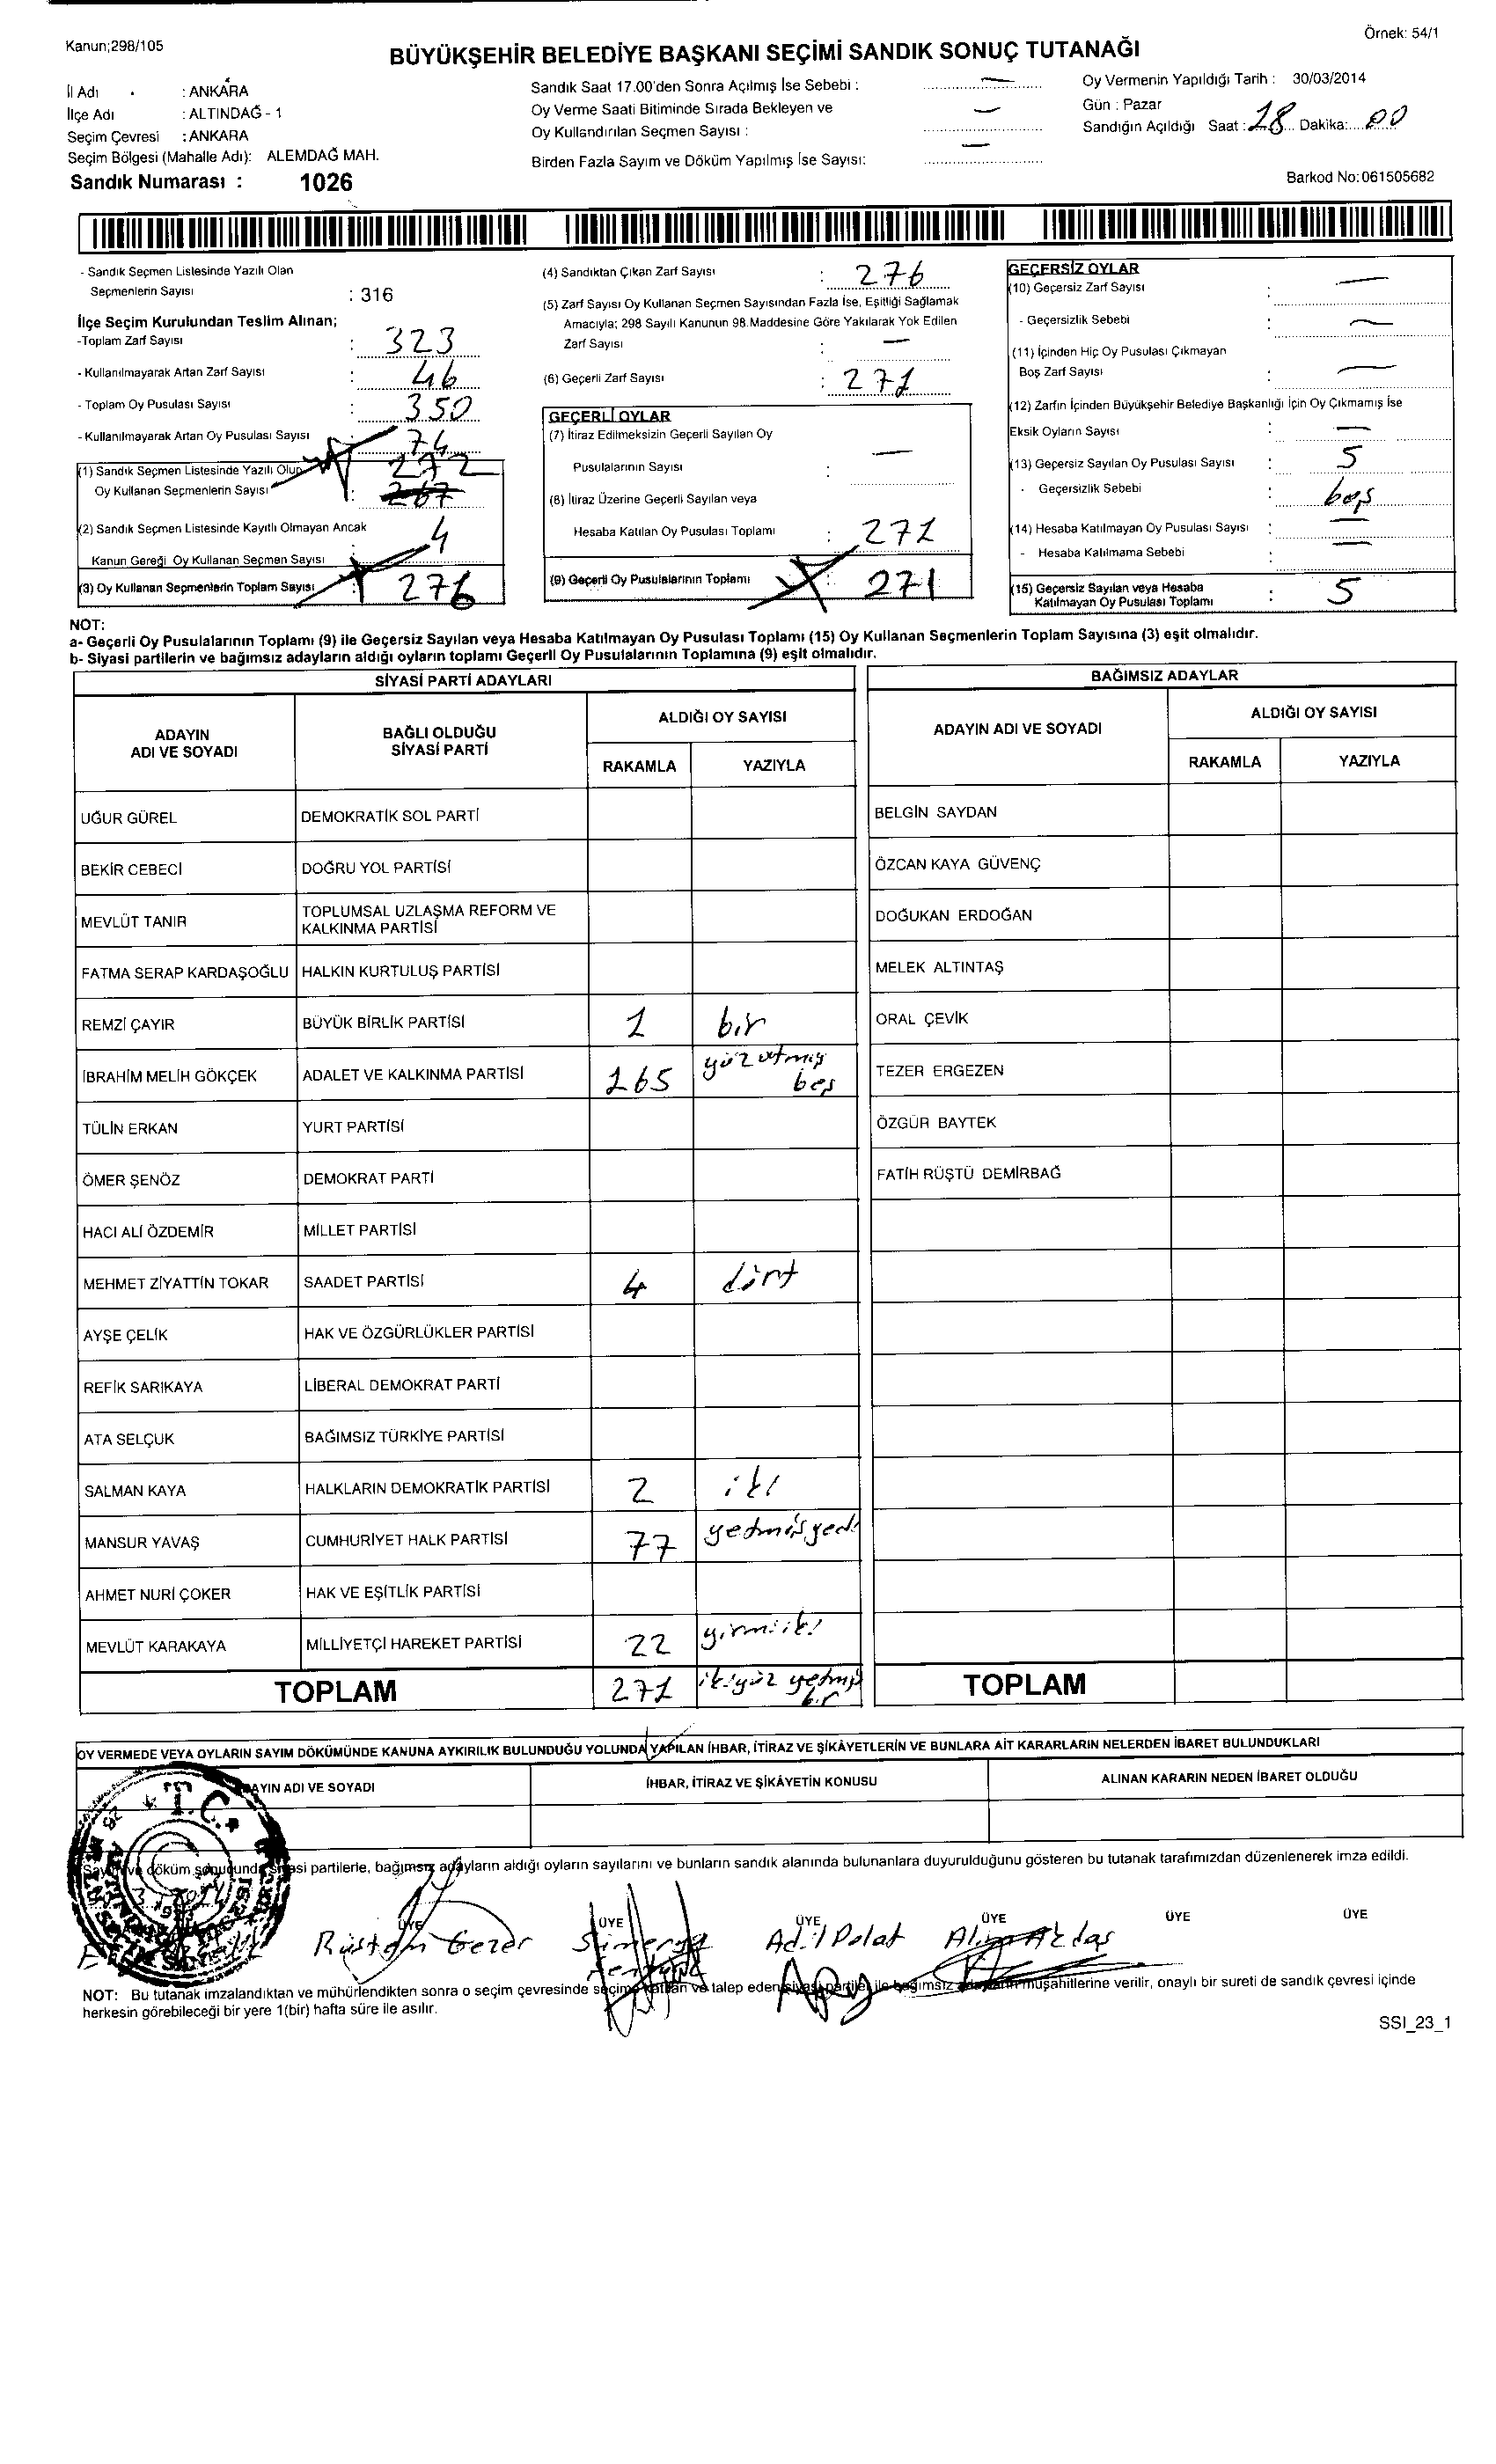 Kanun;298/105
Örnek: 54/1
BÜYÜKŞEHİR BELEDİYE BAŞKANI SEÇİMİ SANDIK SONUÇ TUTANAĞI
İl Adı : ANKARA
İlçe Adı : ALTINDAĞ - 1
Seçim Çevresi : ANKARA
Seçim Bölgesi (Mahalle Adı): ALEMDAĞ MAH.
Sandık Numarası : 1026
Sandık Saat 17.00'den Sonra Açılmış İse Sebebi : —
Oy Verme Saati Bitiminde Sırada Bekleyen ve
Oy Kullandırılan Seçmen Sayısı : —
Birden Fazla Sayım ve Döküm Yapılmış İse Sayısı: —
Oy Vermenin Yapıldığı Tarih : 30/03/2014
Gün : Pazar
Sandığın Açıldığı Saat : 18 Dakika: 00
Barkod No:061505682
- Sandık Seçmen Listesinde Yazılı Olan
Seçmenlerin Sayısı : 316
İlçe Seçim Kurulundan Teslim Alınan;
-Toplam Zarf Sayısı : 323
- Kullanılmayarak Artan Zarf Sayısı : 46
- Toplam Oy Pusulası Sayısı : 350
- Kullanılmayarak Artan Oy Pusulası Sayısı : 74
(1) Sandık Seçmen Listesinde Yazılı Olup 272
Oy Kullanan Seçmenlerin Sayısı : 267
(2) Sandık Seçmen Listesinde Kayıtlı Olmayan Ancak
Kanun Gereği Oy Kullanan Seçmen Sayısı : 4
(3) Oy Kullanan Seçmenlerin Toplam Sayısı 276
(4) Sandıktan Çıkan Zarf Sayısı : 276
(5) Zarf Sayısı Oy Kullanan Seçmen Sayısından Fazla İse, Eşitliği Sağlamak
Amacıyla; 298 Sayılı Kanunun 98.Maddesine Göre Yakılarak Yok Edilen
Zarf Sayısı : —
(6) Geçerli Zarf Sayısı : 271
GEÇERLİ OYLAR
(7) İtiraz Edilmeksizin Geçerli Sayılan Oy
Pusulalarının Sayısı : —
(8) İtiraz Üzerine Geçerli Sayılan veya
Hesaba Katılan Oy Pusulası Toplamı : 271
(9) Geçerli Oy Pusulalarının Toplamı 271
GEÇERSİZ OYLAR
(10) Geçersiz Zarf Sayısı : —
- Geçersizlik Sebebi : —
(11) İçinden Hiç Oy Pusulası Çıkmayan
Boş Zarf Sayısı : —
(12) Zarfın İçinden Büyükşehir Belediye Başkanlığı İçin Oy Çıkmamış İse
Eksik Oyların Sayısı : —
(13) Geçersiz Sayılan Oy Pusulası Sayısı : 5
- Geçersizlik Sebebi : beş
(14) Hesaba Katılmayan Oy Pusulası Sayısı : —
- Hesaba Katılmama Sebebi : —
(15) Geçersiz Sayılan veya Hesaba
Katılmayan Oy Pusulası Toplamı : 5
NOT:
a- Geçerli Oy Pusulalarının Toplamı (9) ile Geçersiz Sayılan veya Hesaba Katılmayan Oy Pusulası Toplamı (15) Oy Kullanan Seçmenlerin Toplam Sayısına (3) eşit olmalıdır.
b- Siyasi partilerin ve bağımsız adayların aldığı oyların toplamı Geçerli Oy Pusulalarının Toplamına (9) eşit olmalıdır.
SİYASİ PARTİ ADAYLARI
ADAYIN ADI VE SOYADI
BAĞLI OLDUĞU SİYASİ PARTİ
ALDIĞI OY SAYISI
RAKAMLA YAZIYLA
UĞUR GÜREL DEMOKRATİK SOL PARTİ
BEKİR CEBECİ DOĞRU YOL PARTİSİ
MEVLÜT TANIR TOPLUMSAL UZLAŞMA REFORM VE
KALKINMA PARTİSİ
FATMA SERAP KARDAŞOĞLU HALKIN KURTULUŞ PARTİSİ
REMZİ ÇAYIR BÜYÜK BİRLİK PARTİSİ 1 bir
İBRAHİM MELİH GÖKÇEK ADALET VE KALKINMA PARTİSİ 165 yüz atmış
beş
TÜLİN ERKAN YURT PARTİSİ
ÖMER ŞENÖZ DEMOKRAT PARTİ
HACI ALİ ÖZDEMİR MİLLET PARTİSİ
MEHMET ZİYATTİN TOKAR SAADET PARTİSİ 4 dört
AYŞE ÇELİK HAK VE ÖZGÜRLÜKLER PARTİSİ
REFİK SARIKAYA LİBERAL DEMOKRAT PARTİ
ATA SELÇUK BAĞIMSIZ TÜRKİYE PARTİSİ
SALMAN KAYA HALKLARIN DEMOKRATİK PARTİSİ 2 iki
MANSUR YAVAŞ CUMHURİYET HALK PARTİSİ 77 yedmiş yedi
AHMET NURİ ÇOKER HAK VE EŞİTLİK PARTİSİ
MEVLÜT KARAKAYA MİLLİYETÇİ HAREKET PARTİSİ 22 yirmi iki
TOPLAM 271 ikiyüz yetmiş
bir
BAĞIMSIZ ADAYLAR
ADAYIN ADI VE SOYADI
ALDIĞI OY SAYISI
RAKAMLA YAZIYLA
BELGİN SAYDAN
ÖZCAN KAYA GÜVENÇ
DOĞUKAN ERDOĞAN
MELEK ALTINTAŞ
ORAL ÇEVİK
TEZER ERGEZEN
ÖZGÜR BAYTEK
FATİH RÜŞTÜ DEMİRBAĞ
TOPLAM
OY VERMEDE VEYA OYLARIN SAYIM DÖKÜMÜNDE KANUNA AYKIRILIK BULUNDUĞU YOLUNDA YAPILAN İHBAR, İTİRAZ VE ŞİKÂYETLERİN VE BUNLARA AİT KARARLARIN NELERDEN İBARET BULUNDUKLARI
ADI VE SOYADI
İHBAR, İTİRAZ VE ŞİKÂYETİN KONUSU
ALINAN KARARIN NEDEN İBARET OLDUĞU
T.C.
döküm sonucunda siyasi partilerle, bağımsız adayların aldığı oyların sayılarını ve bunların sandık alanında bulunanlara duyurulduğunu gösteren bu tutanak tarafımızdan düzenlenerek imza edildi.
ÜYE ÜYE ÜYE ÜYE ÜYE ÜYE
Rüstem Gezer Adil Polat
NOT: Bu tutanak imzalandıktan ve mühürlendikten sonra o seçim çevresinde seçime katılan ve talep eden siyasi partiler ile bağımsız adayların müşahitlerine verilir, onaylı bir sureti de sandık çevresi içinde
herkesin görebileceği bir yere 1(bir) hafta süre ile asılır.
SSI_23_1